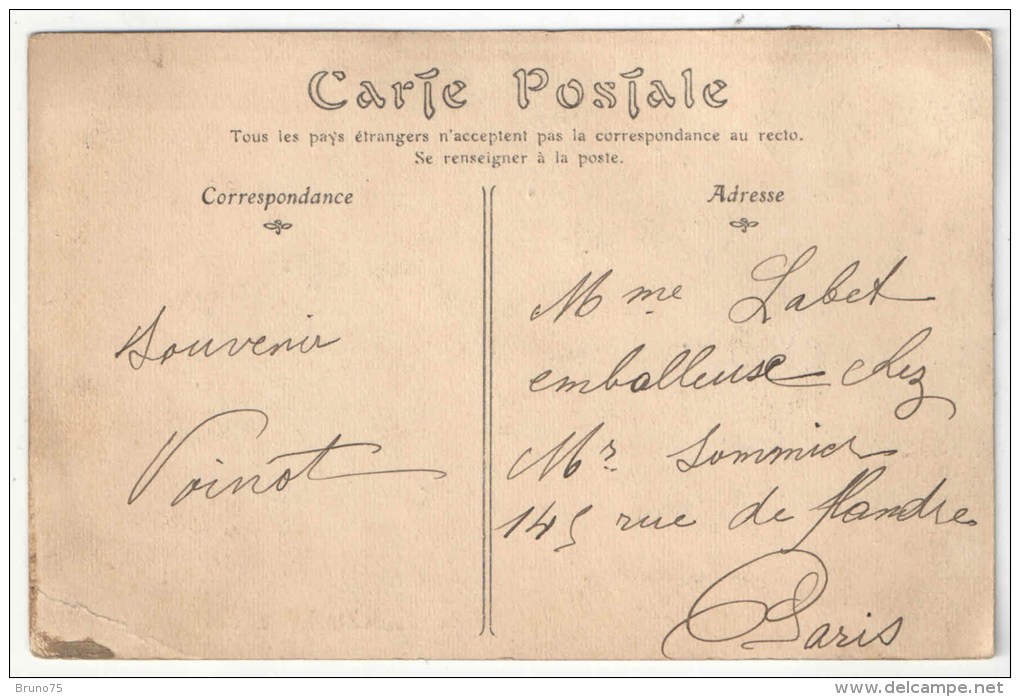 Carte Postale
Tous les pays étrangers n'acceptent pas la correspondance au recto.
Se renseigner à la poste.
Correspondance
Souvenir
Voinot
Adresse
Mme Labet
emballeuse chez
Mr. Sommier
145 rue de flandre
Paris
Bruno75
www.delcampe.net